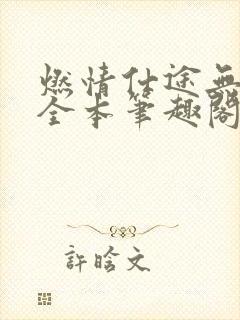 燃情仕途無
全本筆趣閣
許晗文